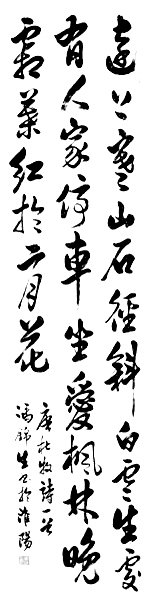 遠上寒山石徑斜白雲生處
有人家停車坐愛楓林晚
霜葉紅於二月花
唐杜牧詩一首
馮錦生书於淮陽